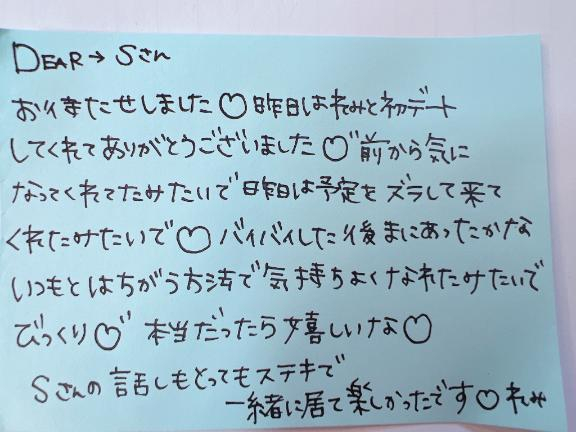 DEAR→Sさん
おまたせしました♡昨日はれみと初デート
してくれてありがとうございました♡前から気に
なってくれてたみたいで昨日は予定をズラして来て
くれたみたいで♡バイバイした後まにあったかな
いつもとはちがう方法で気持ちよくなれたみたいで
びっくり♡本当だったら嬉しいな♡
Sさんの話しもとってもステキで
一緒に居て楽しかったです♡れみ